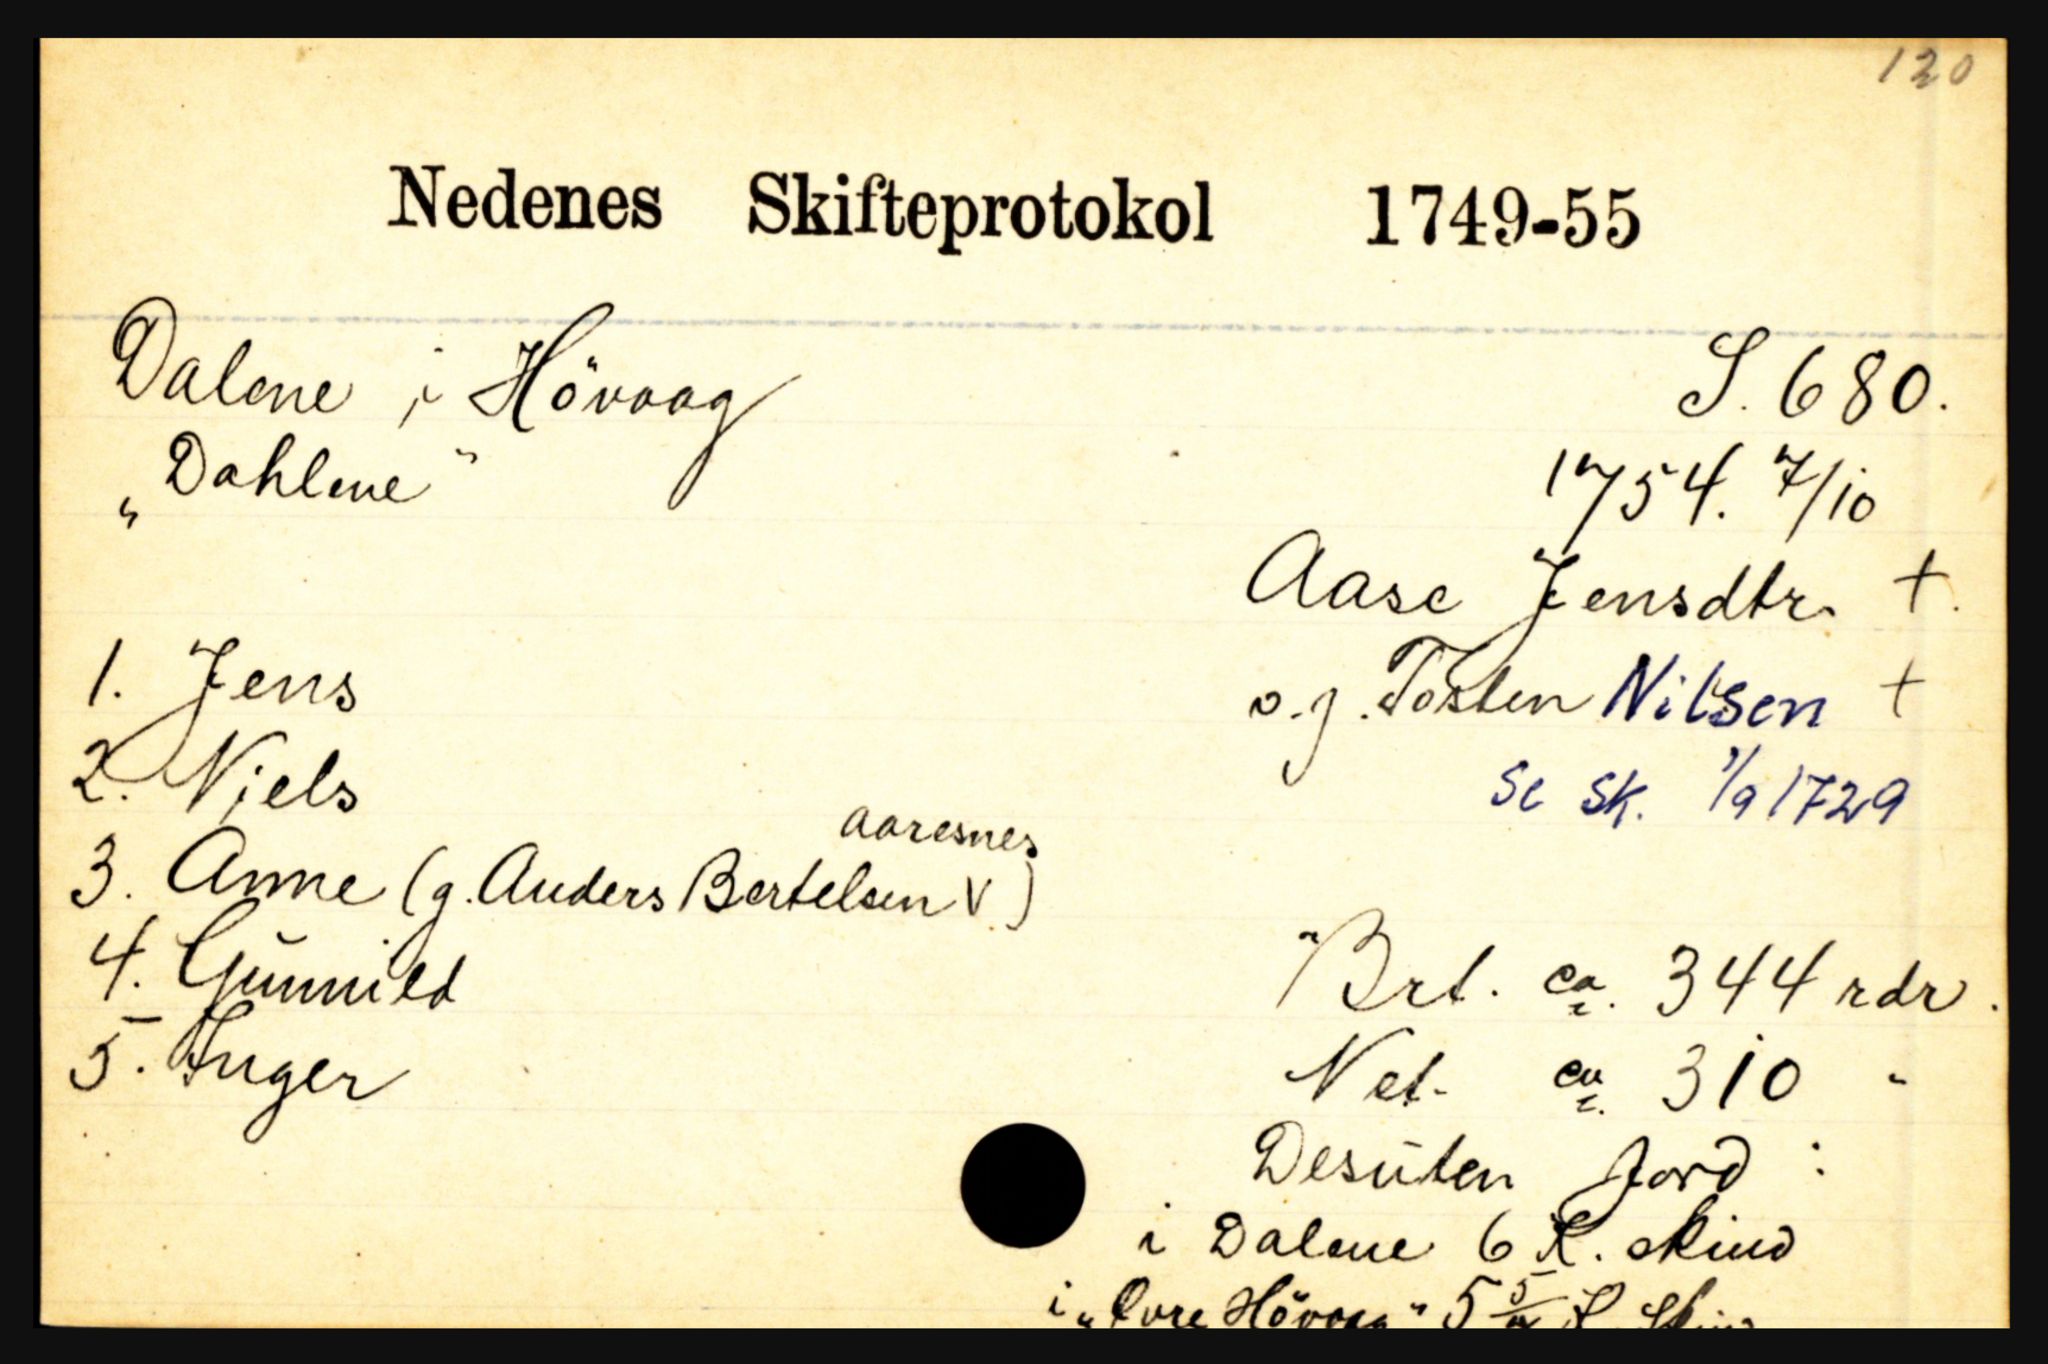 120
Nedenes Skifteprotokol 1749-55
Dalene i Hövaag S. 680.
„Dahlene" 1754. 7/10
Aase Jensdtr. +.
1. Jens
o.g. Tosten Nilsen +
2. Niels
Se Sk. 1/9 1729
Aaresnes
3. Anne (g. Anders Bertelsen V)
4. Gunnild
Brt. ca. 344 rdr.
5. Inger
Net. ca. 310 "
Desuten Jord :
i Dalene 6 K. skind
i „Øvre Hövaag" 5